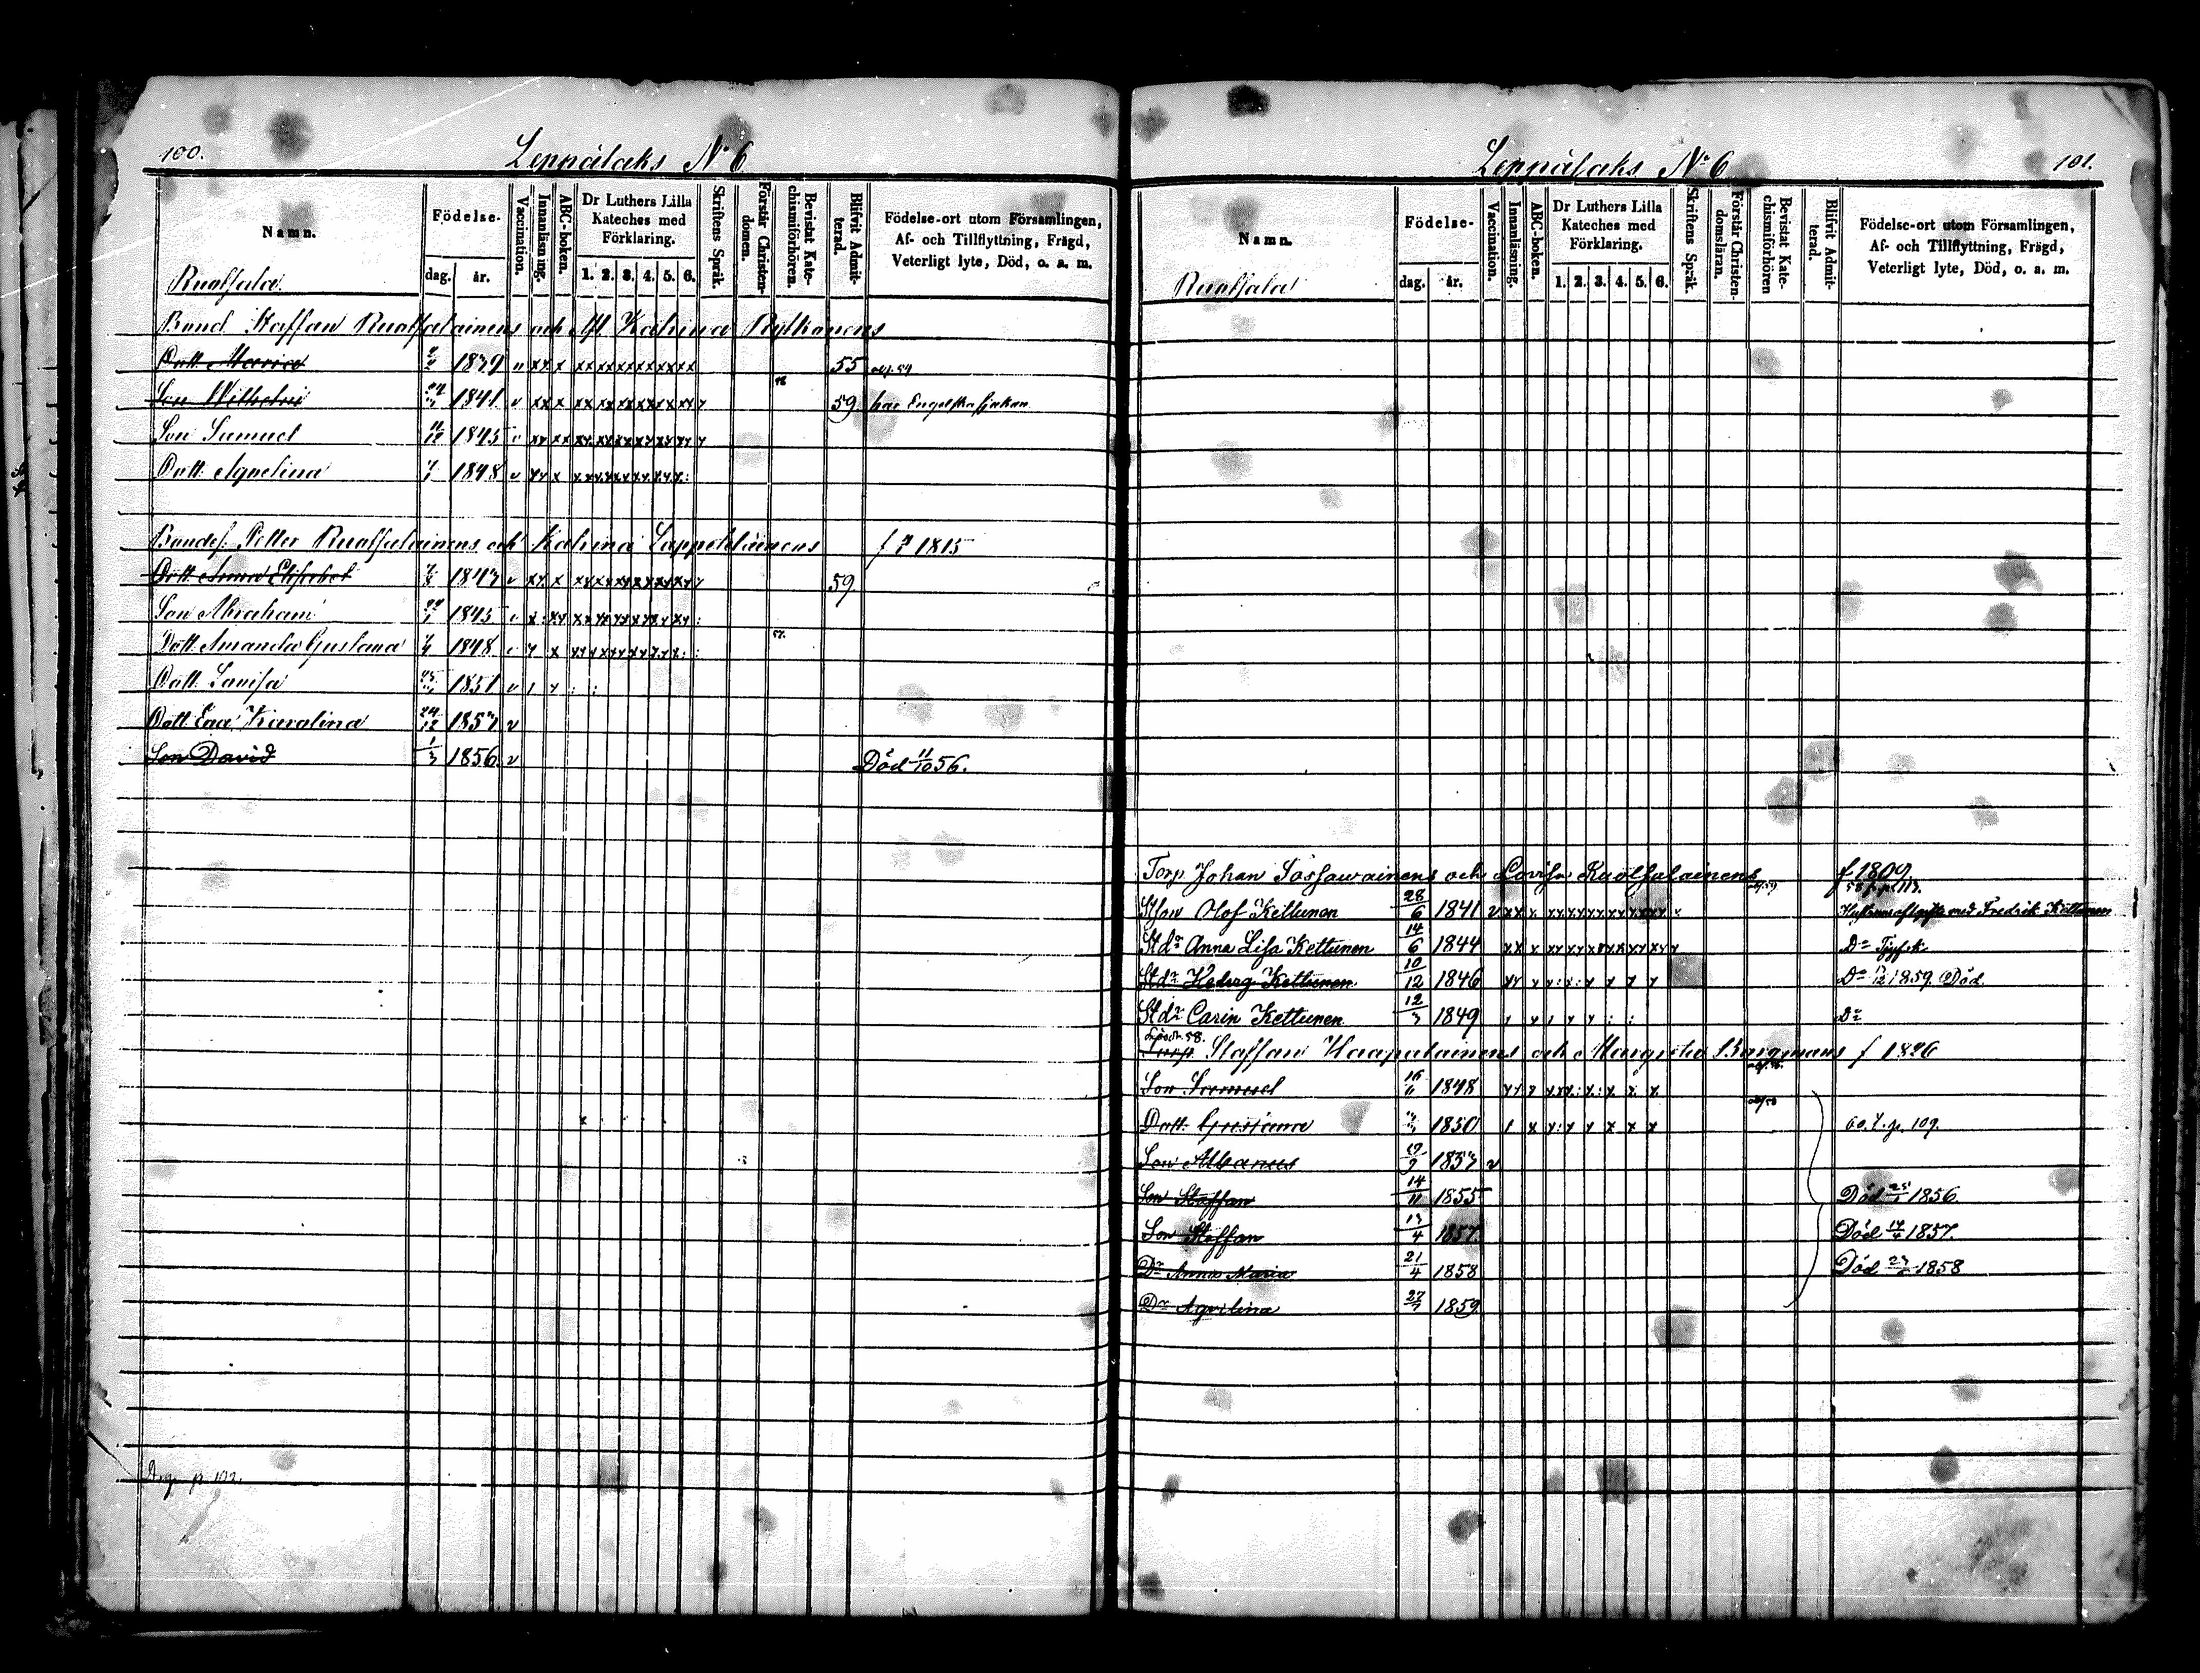 100.
Leppälaks No 6
Namn.
Födelse-
dag.
år.
Vaccination.
Innanläsning.
ABC-boken.
Dr Luthers Lilla Kateches med Förklaring.
1. 2. 3. 4. 5. 6.
Skriftens Språk.
Förstår Christendomen.
Bevistat Katechismiförhören.
Blifvit Admitterad.
Födelse-ort utom Församlingen, Af- och Tillflyttning, Frägd, Veterligt lyte, Död, o. a. m.
Ruotsala
Bond. Staffan Ruotsalainens och Katrina Pylkönens
Dott. Maria 1839 55
Son Wilhelm 1841 v 59. har Engelska sjukan
Son Samuel 11/12 1845
Dott. Agnelina 1848 v
Bondes. Petter Ruotsalainens och Katrina Lappeteläinens f 1815
Dott. Anna Elisabet 1843 v 59.
Son Abraham 1845
Dott. Amanda Gustava 1848
Dott. Lovisa 1851 v
Dott. Eva Karolina 24/12 1853 v
Son David 1/3 1856. v Död 11/10 56.
101.
Leppälaks No 6
Namn.
Födelse-
dag.
år.
Vaccination.
Innanläsning.
ABC-boken.
Dr Luthers Lilla Kateches med Förklaring.
1. 2. 3. 4. 5. 6.
Skriftens Språk.
Förstår Christendomsläran.
Bevistat Katechismiförhören
Blifvit Admitterad.
Födelse-ort utom Församlingen, Af- och Tillflyttning, Frägd, Veterligt lyte, Död, o. a. m.
Ruotsala
Torp. Johan Sässawainens och Lovisa Ruotsalainens f 1809.
Stson Olof Kettunen 28/6 1841 v med Fredrik Kettunen
Stdr Anna Lisa Kettunen 14/6 1844 Do
Stdr Hedvig Kettunen 10/12 1846 Do 1859. Död
Stdr Carin Kettunen 12/3 1849 Do
58. Staffan Haapalainens och Margreta Bergmans f 1826
Son Samuel 16/11 1848
Dott. Gustava 1850 p. 109.
Son Albanus 1853 v
Son Staffan 14/11 1855 Död 1856.
Son Staffan 13/4 1857. Död 17/4 1857.
Dr Anna Maria 21/4 1858 Död 1858
Dr Aqvilina 27/7 1859